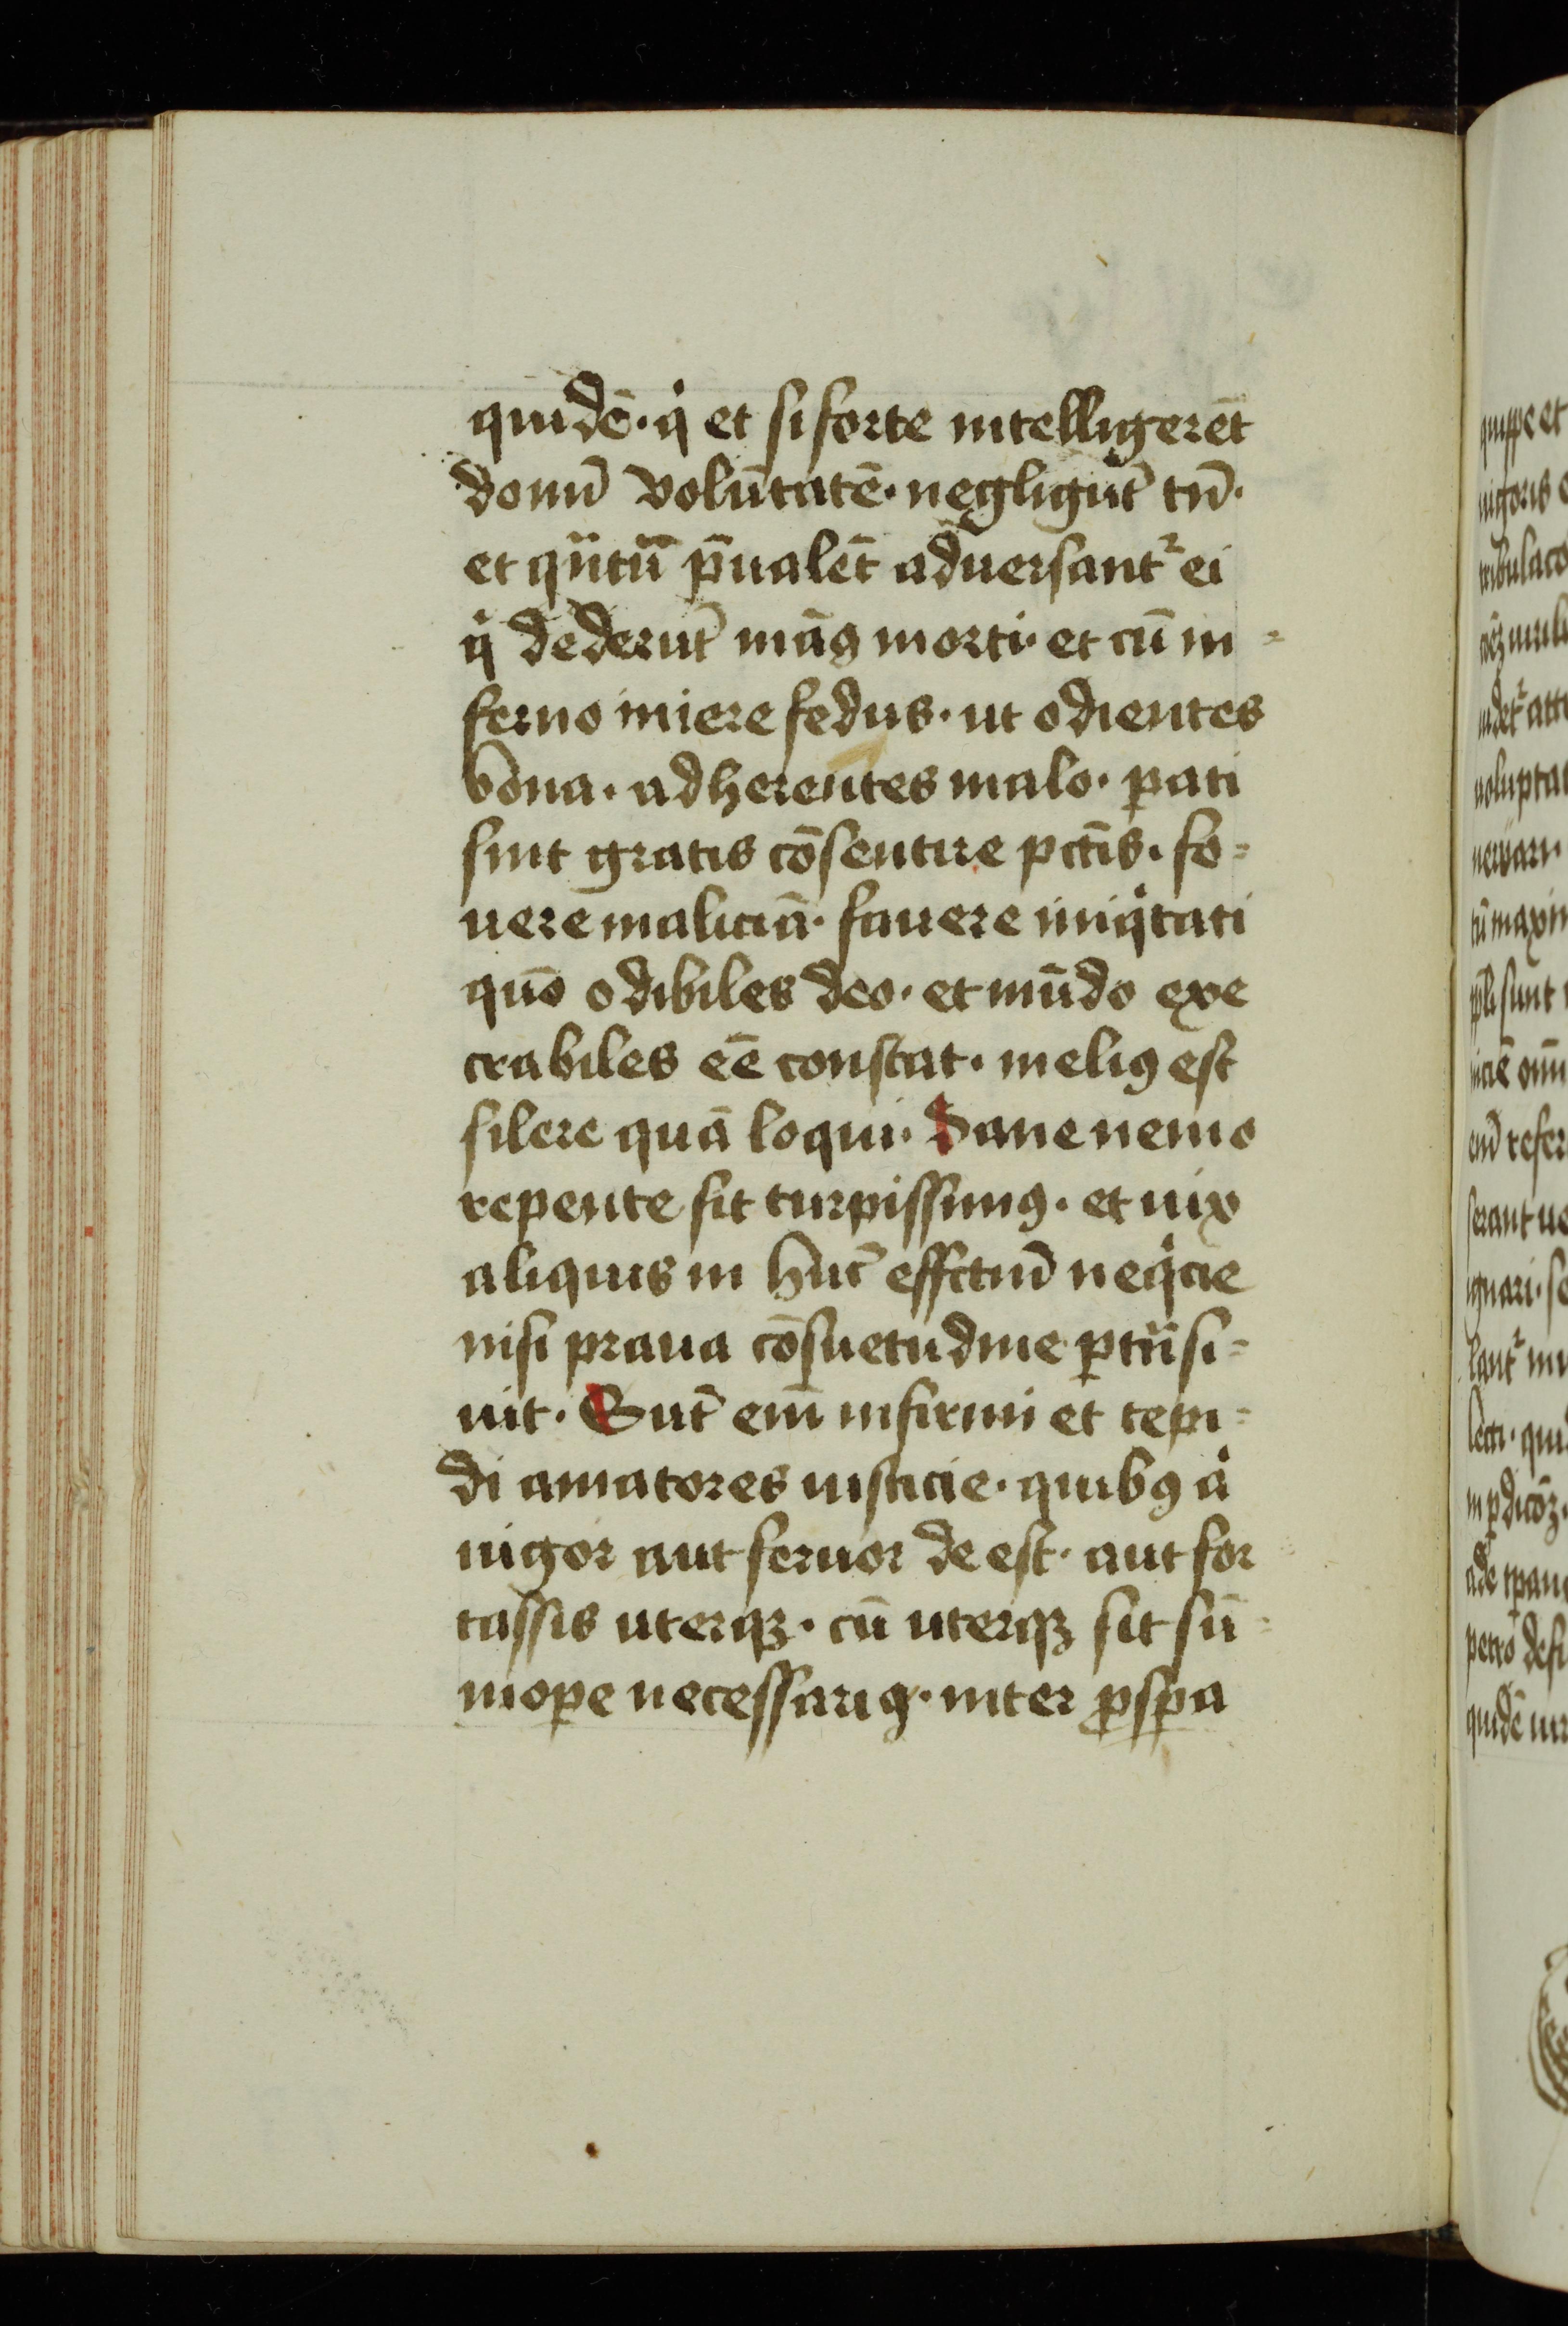 quidē· q̇ et si forte intelligerēt
domī volūtatē· negligūt tn̄·
et qͣntū p̄ualēt aduersantᷣ ei
q̇ dederūt manꝰ morti· et cū in=
ferno iniere fedus· ut odientes
bona· adherentes malo· ꝑati
sint gratis cōsentire pctīs· fo=
uere maliciā· fauere iniqͥtati
quō odibiles deo· et mūdo exe
crabiles eē constat· meliꝰ est
silere quā loqui· Sane nemo
repente fit turpissimꝰ· et uix
aliquis in hāc effectum̄ neqͥcie
nisi praua cōsuetudine ptrāsi=
uit· Sūt enī infirmi et tepi=
di amatores iusticie· quibꝰ aͭ
uigor aut feruor de est· aut for
tassis uterqꝫ· cū uterqꝫ sit sū=
mope necessariꝰ· inter ꝓsꝑa
quippe et
uigoris
uoluptat
tū maxi
sunt
omī
refer
serant
ignari· se
lantᷣ
quidē